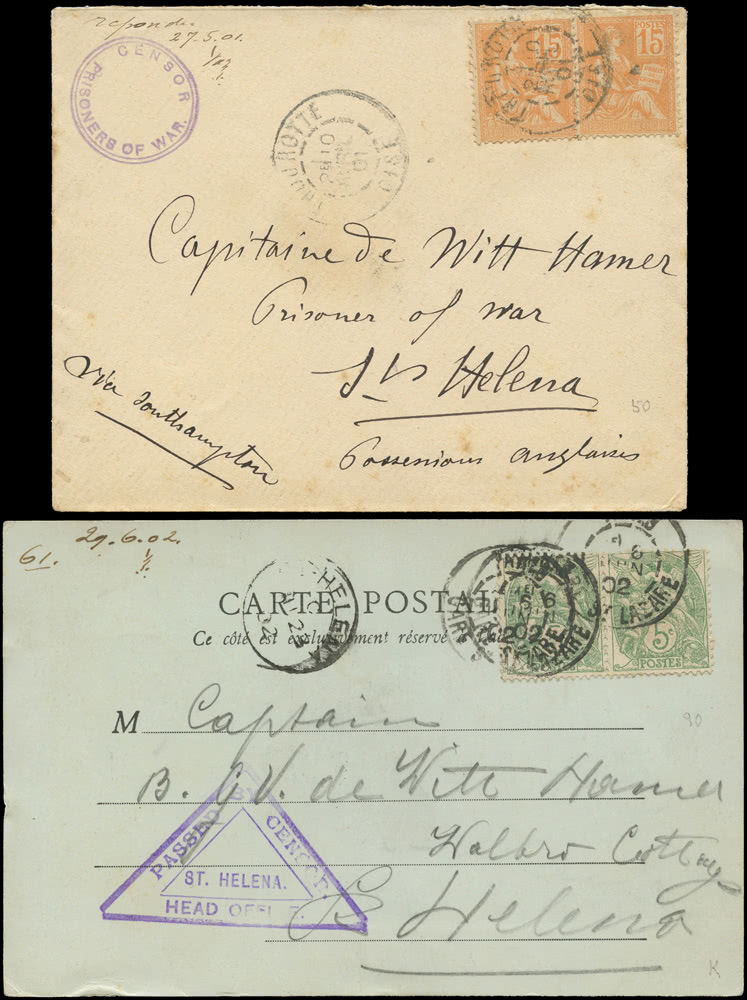 reponder
27.5.01.
CENSOR
PRISONERS OF WAR.
15
POSTES
15
THOUROTTE
OISE
10
AVRIL
01
Capitaine de Witt Hamer
Prisoner of war
St Helena
Via Southampton
50
Possessions anglaises
61.
29.6.02.
ST HELENA
CARTE POSTALE
Ce côté est exclusivement réservé
02
ST LAZARE
5c
POSTES
M Captain
90
B. G. V. de Witt Hamer
PASSED BY CENSOR.
ST. HELENA.
HEAD OFFICE.
Cottage
St Helena
K